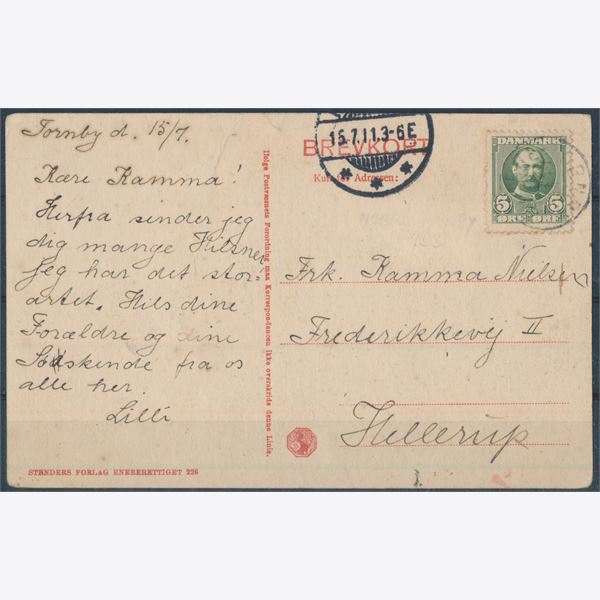 Tornby d. 15/7.
Kære Kamma!
Herfra sender jeg
dig mange Hilsner
jeg har det stor-
artet. Hils dine
Forældre og dine
Sødskende fra os
alle her.
Lilli
STENDERS FORLAG ENEBERETTIGET 226
Ifølge Postvæsenets Forordning maa Korrespondancen ikke overskride denne Linie.
15.7.11.3-6E
BREVKORT
Kun til Adressen:
DANMARK
5 5
ØRE ØRE
Frk. Kamma Nielsen
Frederikkevej II
Hellerup